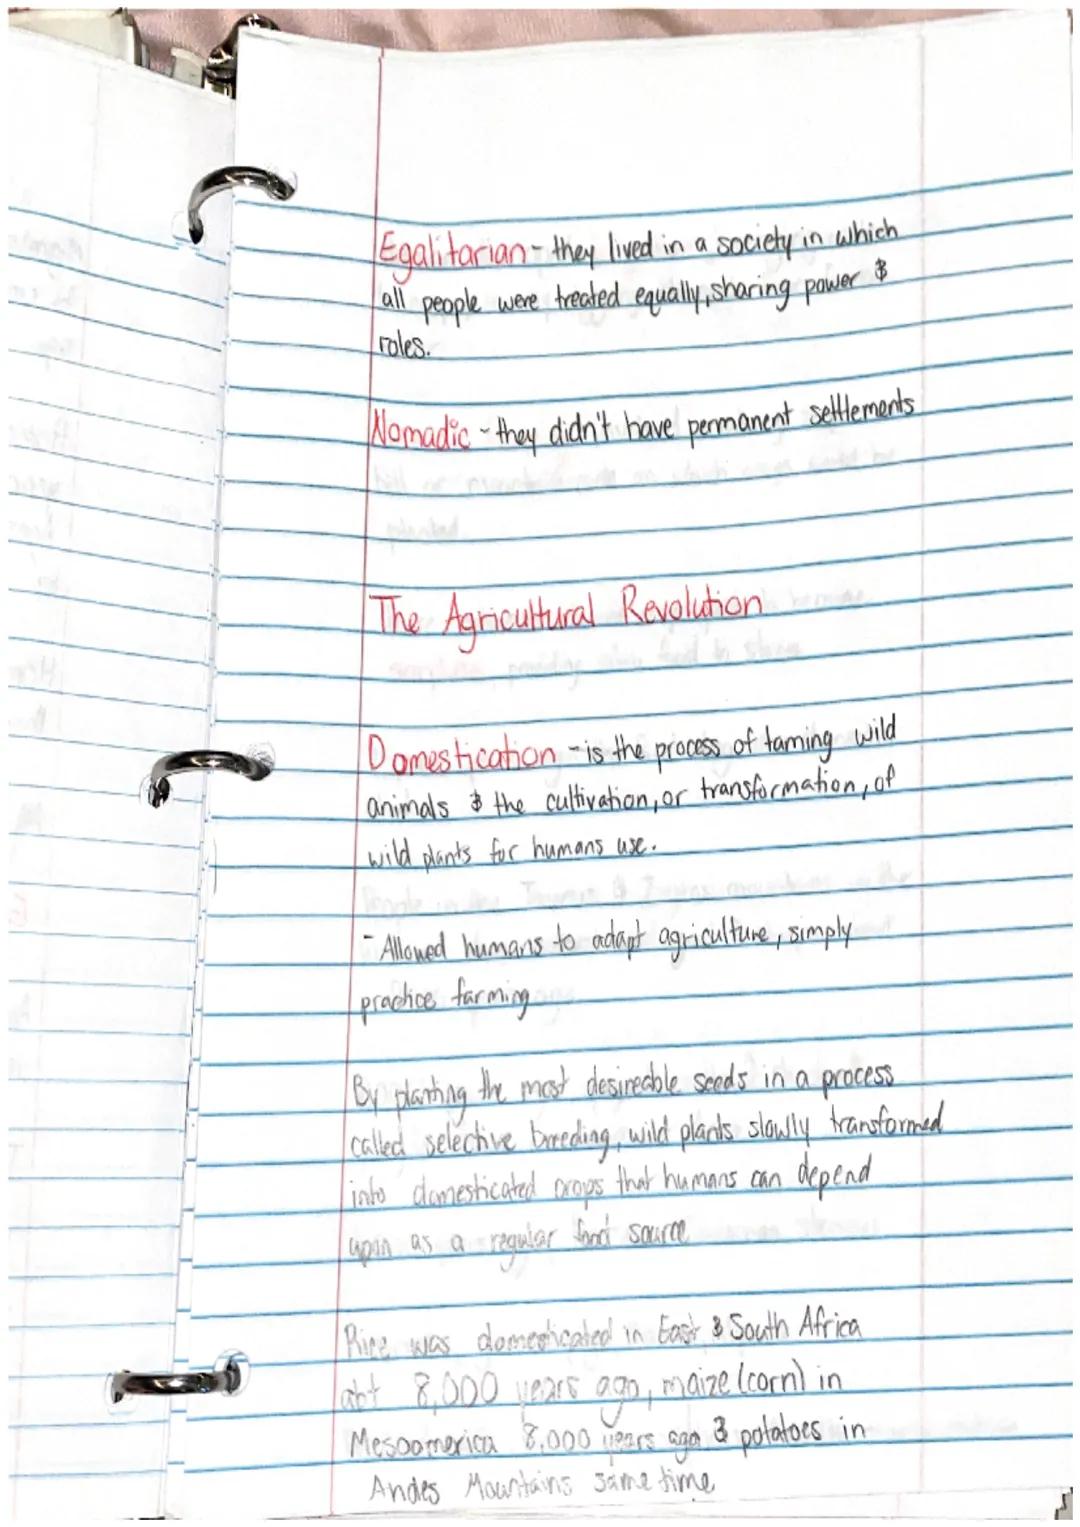 Egalitarian - they lived in a society in which
all people were treated equally, sharing power &
roles.
Nomadic - they didn't have permanent settlements
The Agricultural Revolution
Domestication - is the process of taming wild
animals & the cultivation, or transformation, of
wild plants for humans use.
- Allowed humans to adapt agriculture, simply
practice farming
By planting the most desireable seeds in a process
called selective breeding, wild plants slowly transformed
into domesticated crops that humans can depend
upon as a regular food source
Rice was domesticated in East & South Africa
abt 8,000 years ago, maize (corn) in
Mesoamerica 8,000 years ago & potatoes in
Andes Mountains same time